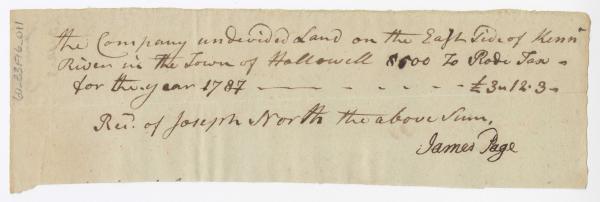 the Company undivided Land on the East Side of Kennᶜ
River in the Town of Hallowell 8500 To Rode Tax
for the year 1787 — — - - - - - £3 " 12 . 3 "
Recᵈ. of Joseph North the above Sum,
James Page
61-3376.011